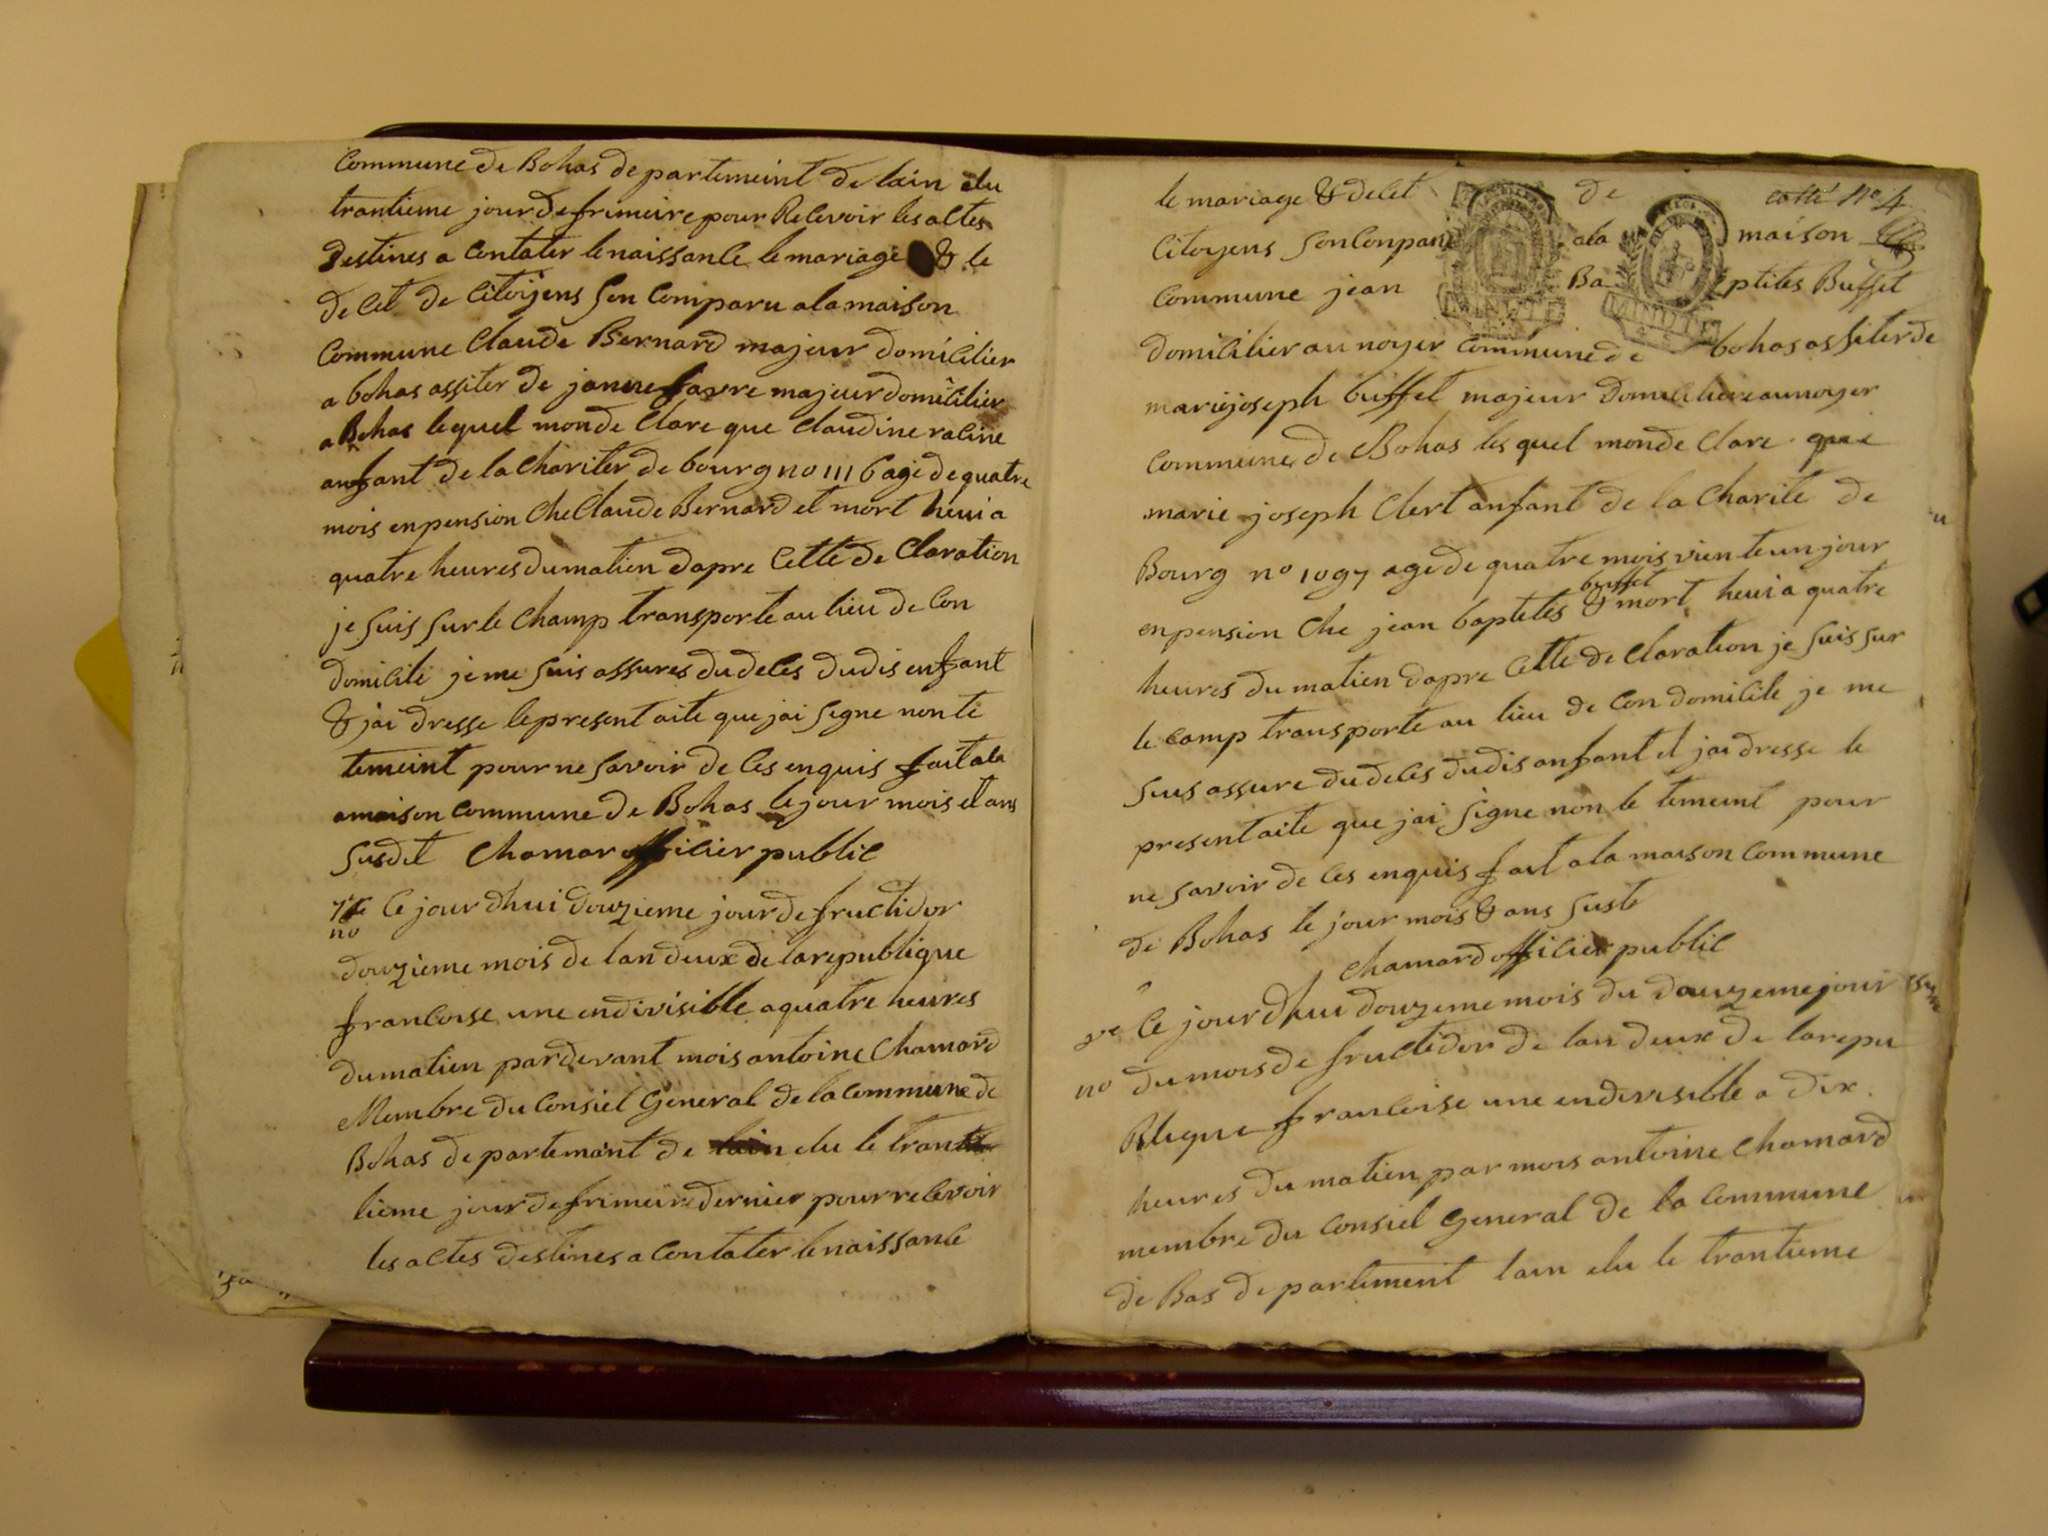 Commune de Bohas departemeint de lain elu
trantieme jour de frimeire pour Relevoir les altes
destines a Contater le naissanle le mariage & le
de let de litoijens son Comparu ala maison
Commune Claude Bernard majeur domililier
a bohas assiter de janne favre majeur domililier
a Bohas lequel mon de Clare que Claudine raline
anfant de la Chariter de bourg no 1116 age de quatre
mois en pension Che Claude Bernard et mort heui a
quatre heures du matien dapre Cette de Claration
je suis sur le Champ transporte au lieu de Con
domilile je me suis assures du deles dudis enfant
& jai dresse le present aite que jai signe non te
temeint pour ne savoir de les enquis fait ala
amaison commune de Bohas le jour mois et ans
susdit Chamar offilier publil
Ce jour dhui douzieme jour de fructidor
no
douzieme mois de lan deux de la republique
francoise une endivisible a quatre heures
du matien par devant mois antoine Chamard
Membre du Consiel General de la commune de
Bohas de partemant de elu le tran
tieme jour de frimeire dernier pour relevoir
les altes destines a Contater le naissanle
cotté no 4
le mariage & de let de
litoyens son Conparu ala maison
Commune jean Ba ptites Buffet
domililier au noyer Commune de bohas assiter de
marie joseph buffet majeur domililiere au noyer
commune de Bohas les quel mon de Clare que
marie joseph Clert anfant de la Charite de
Bourg no 1097 age de quatre mois vient e un jour
buffet
en pension Che jean baptetes & mort heui a quatre
heures du matien dapre Cette de Claration je suis sur
le camp transporte au lieu de Con domilile je me
suis assure du deles dudis anfant et jai dresse le
present aite que jai signe non le temeint pour
ne savoir de les enquis fait a la maison Commune
de Bohas le jour mois & ans suste
Chamard offilier publil
Ce jour dhui douzeme mois du douzeme jour
no du mois de fructidor de lan deux de la repu
Blique francoise une endivisible a dix
heures du matien par mois antoine Chamard
membre du Consiel General de la Commune
de Bas de partement lain elu le trantieme